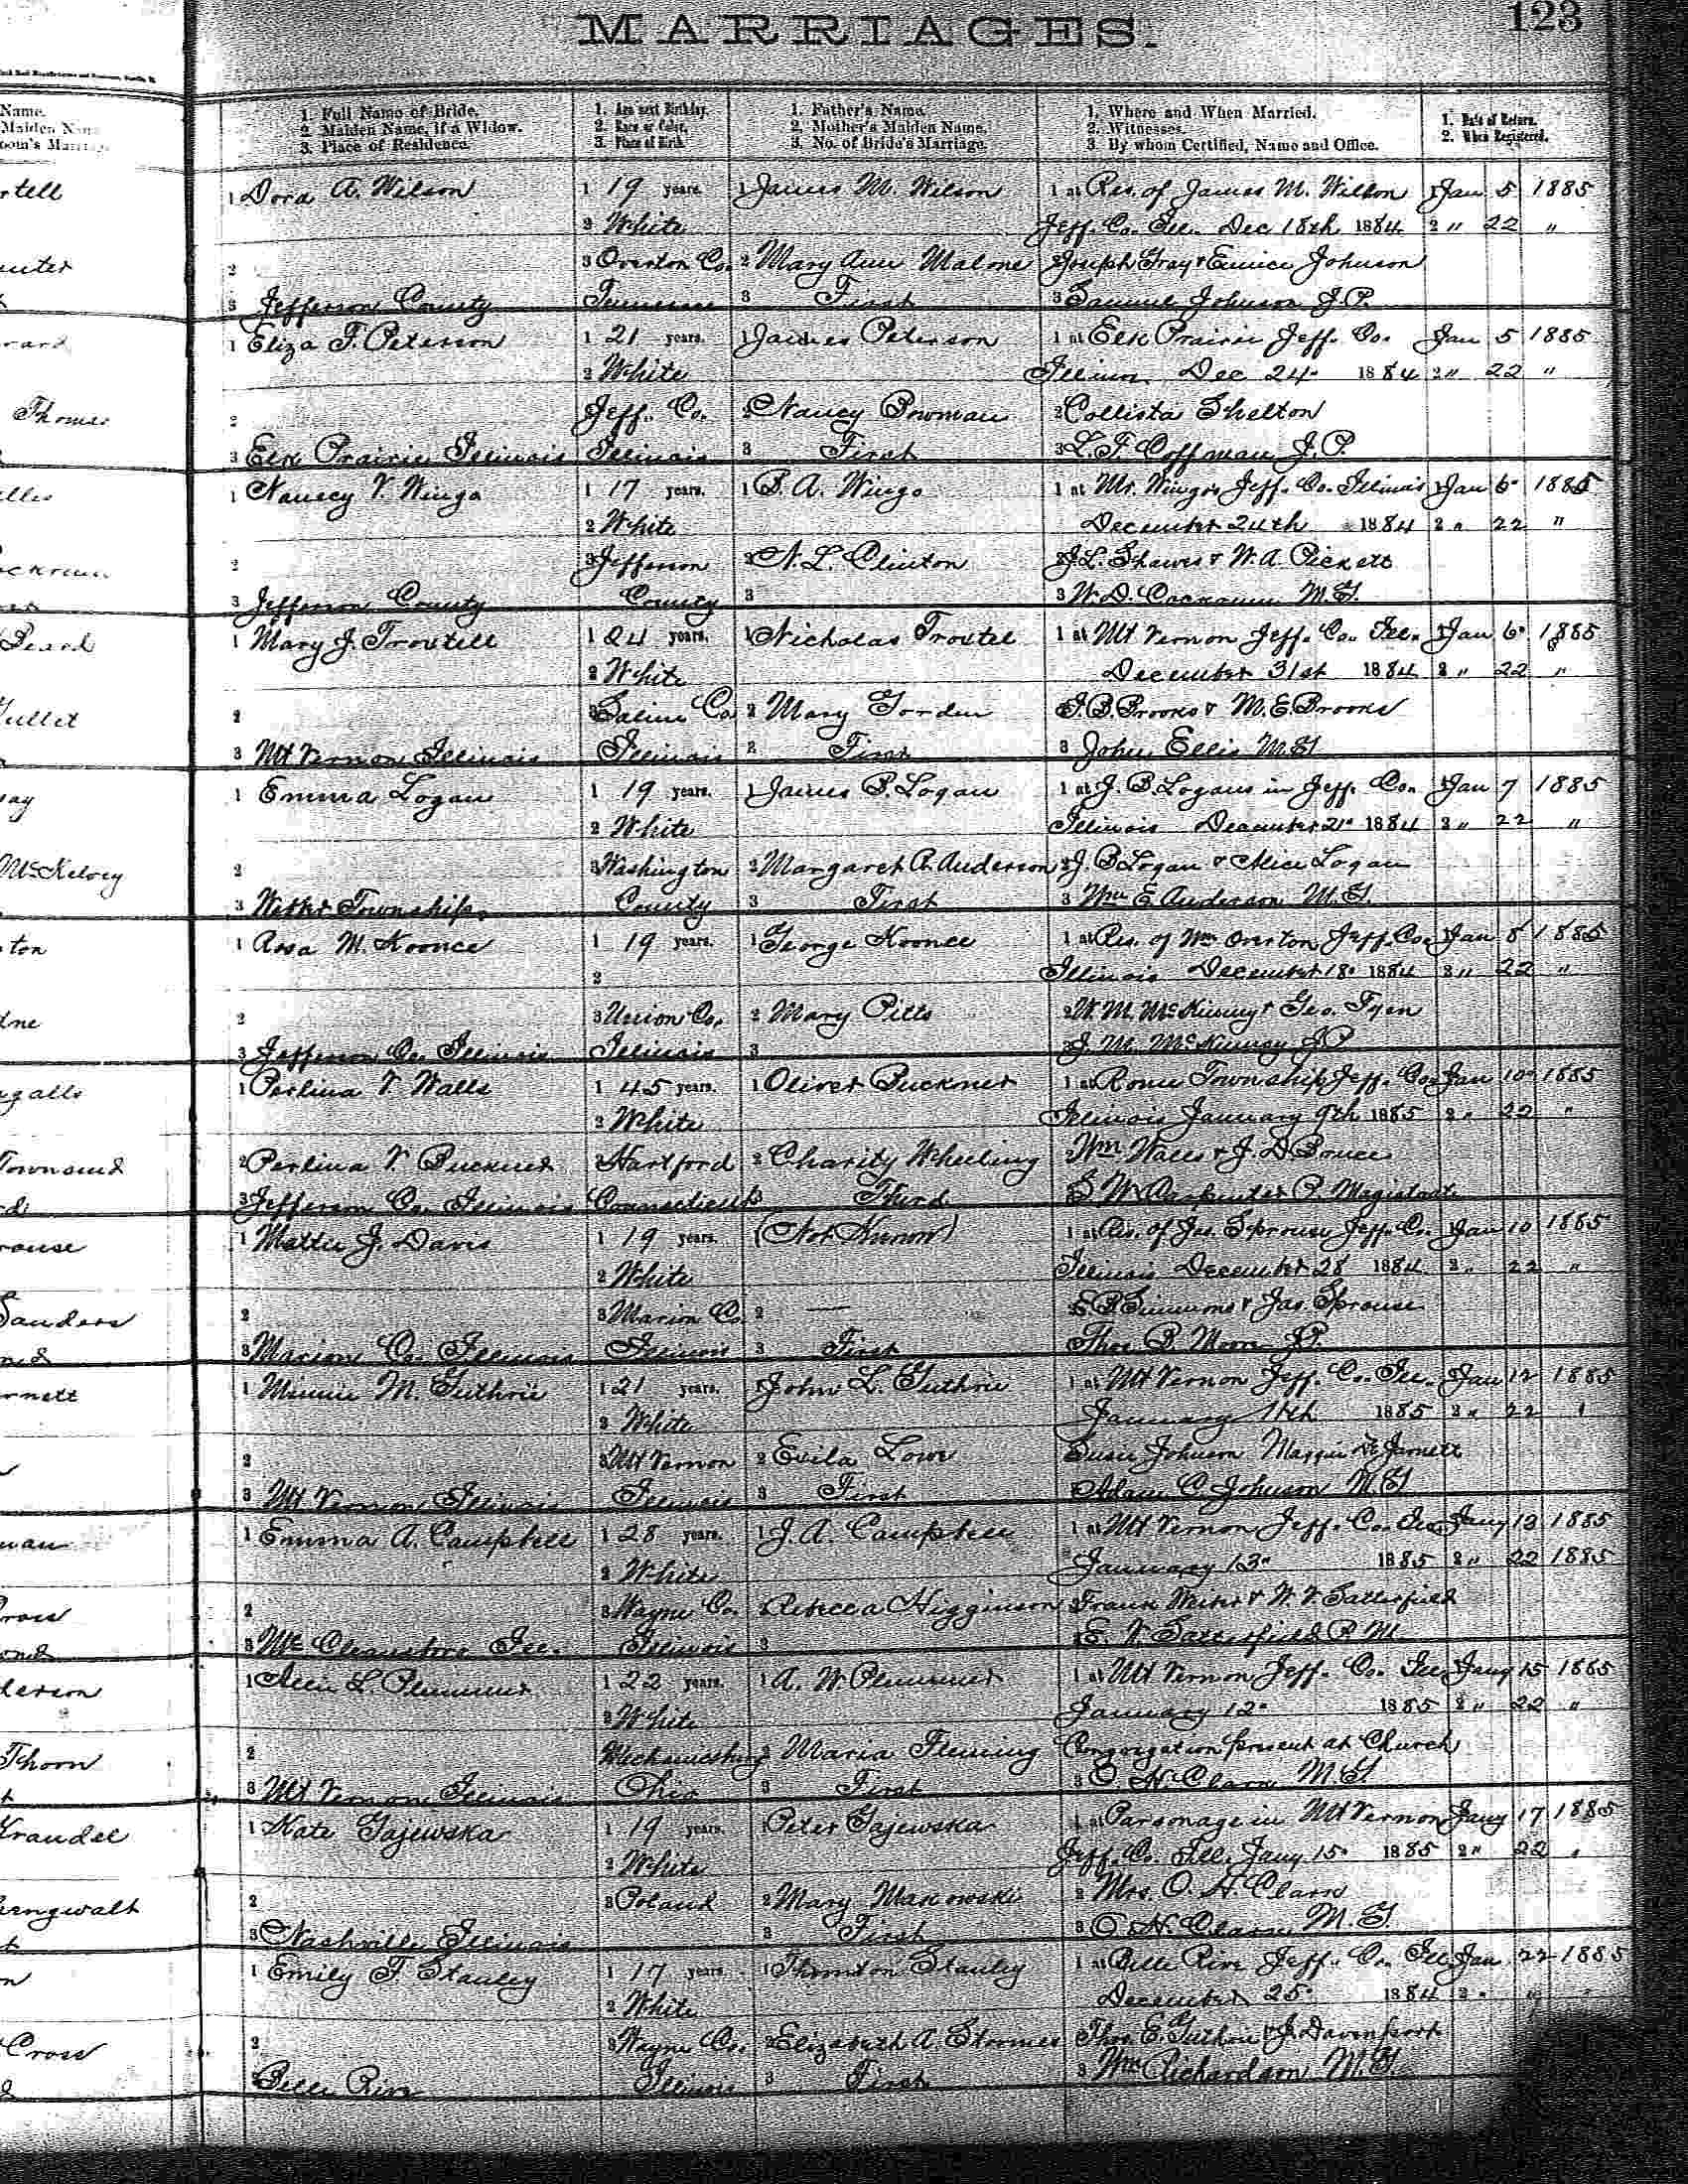 MARRIAGES.
123
Name.
1. Full Name of Bride.
2. Maiden Name, if a Widow.
3. Place of Residence.
1. Age next Birthday.
2. Race or Color.
3. Place of Birth.
1. Father's Name.
2. Mother's Maiden Name.
3. No. of Bride's Marriage.
1. Where and When Married.
2. Witnesses.
3. By whom Certified, Name and Office.
1. Date of Return.
2. When Registered.
1 Dora A. Wilson 1 19 years. 1 James M. Wilson 1 at Res. of James M. Wilson 1 Jan 5 1885
2 White Jeff. Co. Ill. Dec 18th 1884 2 " 22 "
2 3 Overton Co. 2 Mary Ann Malone 2 Joseph Gray & Eunice Johnson
3 Jefferson County Tennessee 3 First 3 Samuel Johnson J.P.
1 Eliza F. Peterson 1 21 years. 1 James Peterson 1 at Elk Prairie Jeff. Co. Jan 5 1885
2 White Illinois Dec 24 1884 2 " 22 "
Thomas 2 Jeff. Co. 2 Nancy Bowman 2 Collista Shelton
3 Elk Prairie Illinois Illinois 3 First 3 L. F. Coffman J.P.
1 Nancy V. Wingo 1 17 years. 1 P. A. Wingo 1 at Mr. Wingos Jeff. Co. Illinois 1 Jan 6 1885
2 White December 24th 1884 2 " 22 "
2 3 Jefferson 2 N. L. Clinton J. L. Shawes & W. A. Pickett
3 Jefferson County County 3 3 W. D. M.G.
1 Mary J. Troutell 1 24 years. 1 Nicholas Troutel 1 at Mt Vernon Jeff. Co. Ill. 1 Jan 6 1885
2 White December 31st 1884 2 " 22 "
2 3 Saline Co. 2 Mary Gorden J. B. Brooks & M. E. Brooks
3 Mt Vernon Illinois Illinois 3 First 3 John Ellis M.G.
1 Emma Logan 1 19 years. 1 James B. Logan 1 at J. B. Logans in Jeff. Co. 1 Jan 7 1885
2 White Illinois December 21 1884 2 " 22 "
McKelvey 2 3 Washington 2 Margaret A. Anderson 2 J. B. Logan & Alice Logan
3 Webber Township County 3 First 3 Wm E. Anderson M.G.
1 Rosa M. Koonce 1 19 years. 1 George Koonce 1 at Res. of Wm Overton Jeff. Co. Jan 8 1885
2 Illinois December 18 1884 2 " 22 "
2 3 Union Co. 2 Mary Pitts 2 W. M. McKinney & Geo. Tyen
3 Jefferson Co. Illinois Illinois 3 J. M. McKinney J.P.
1 Perlina V. Walls 1 45 years. 1 Oliver Puckner 1 at Rome Township Jeff. Co. Jan 10 1885
2 White Illinois January 9th 1885 2 " 22 "
Townsend 2 Perlina V. Puckner Hartford 2 Charity Wheeling 2 Wm Walls & J. D. Bruce
3 Jefferson Co. Illinois Connecticut 3 Third S. W. Carpenter P. Magistrate
1 Mattie J. Davis 1 19 years. (Not Known) 1 at Res. of Jas. Sprouse Jeff. Co. Jan 10 1885
2 White Illinois December 28 1884 2 " 22 "
Sanders 2 3 Marion Co. 2 — Simmons & Jas. Sprouse
3 Marion Co. Illinois Illinois 3 First Thos. B. Moore J.P.
1 Minnie M. Guthrie 1 21 years. John L. Guthrie 1 at Mt Vernon Jeff. Co. Ill. Jan 12 1885
2 White January 1885 2 " 22
2 3 Mt Vernon 2 Lowe Susie Johnson Maggie DeJarnett
3 Mt Vernon Illinois Illinois 3 First Adam C. Johnson M.G.
1 Emma A. Campbell 1 28 years. 1 J. A. Campbell 1 at Mt Vernon Jeff. Co. Ill. Jany 13 1885
2 White January 13 1885 2 " 22 1885
2 3 Wayne Co. 2 Rebecca Higginson Frank & W. V. Satterfield
3 Mc Leansboro Ill. Illinois 3 Satterfield P.M.
1 Alice L. Plummer 1 22 years. 1 A. W. Plummer 1 at Mt Vernon Jeff. Co. Ill. Jany 15 1885
2 White January 12 1885 2 " 22 "
Thorn 2 Mechanicsburg 2 Maria Fleming Congregation present at Church
3 Mt Vernon Illinois Ohio 3 First 3 C. H. Clark M.G.
1 Kate Gajewska 1 19 years. Peter Gajewska 1 at Parsonage in Mt Vernon Jany 17 1885
2 White Jeff. Co. Ill. Jany. 15 1885 2 " 22 "
2 3 Poland 2 Mary 2 Mrs. O. H. Clark
3 Nashville Illinois 3 First 3 O. H. Clark M.G.
1 Emily F. Stanley 1 17 years. 1 Thornton Stanley 1 at Belle Rive Jeff. Co. Ill. Jan. 22 1885
2 White December 25 1884 2 " "
Cross 2 3 Wayne Co. 2 Elizabeth A. Thos. E. Guthrie & J. Davenport
Belle Rive Illinois 3 First 3 Wm Richardson M.G.